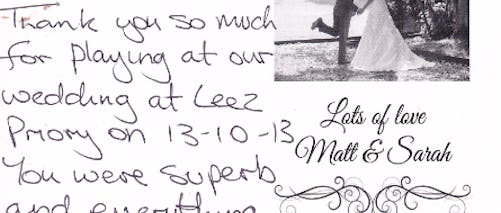 Thank you so much
for playing at our
wedding at Leez
Priory on 13-10-13
You were superb
and everything
Lots of love
Matt & Sarah